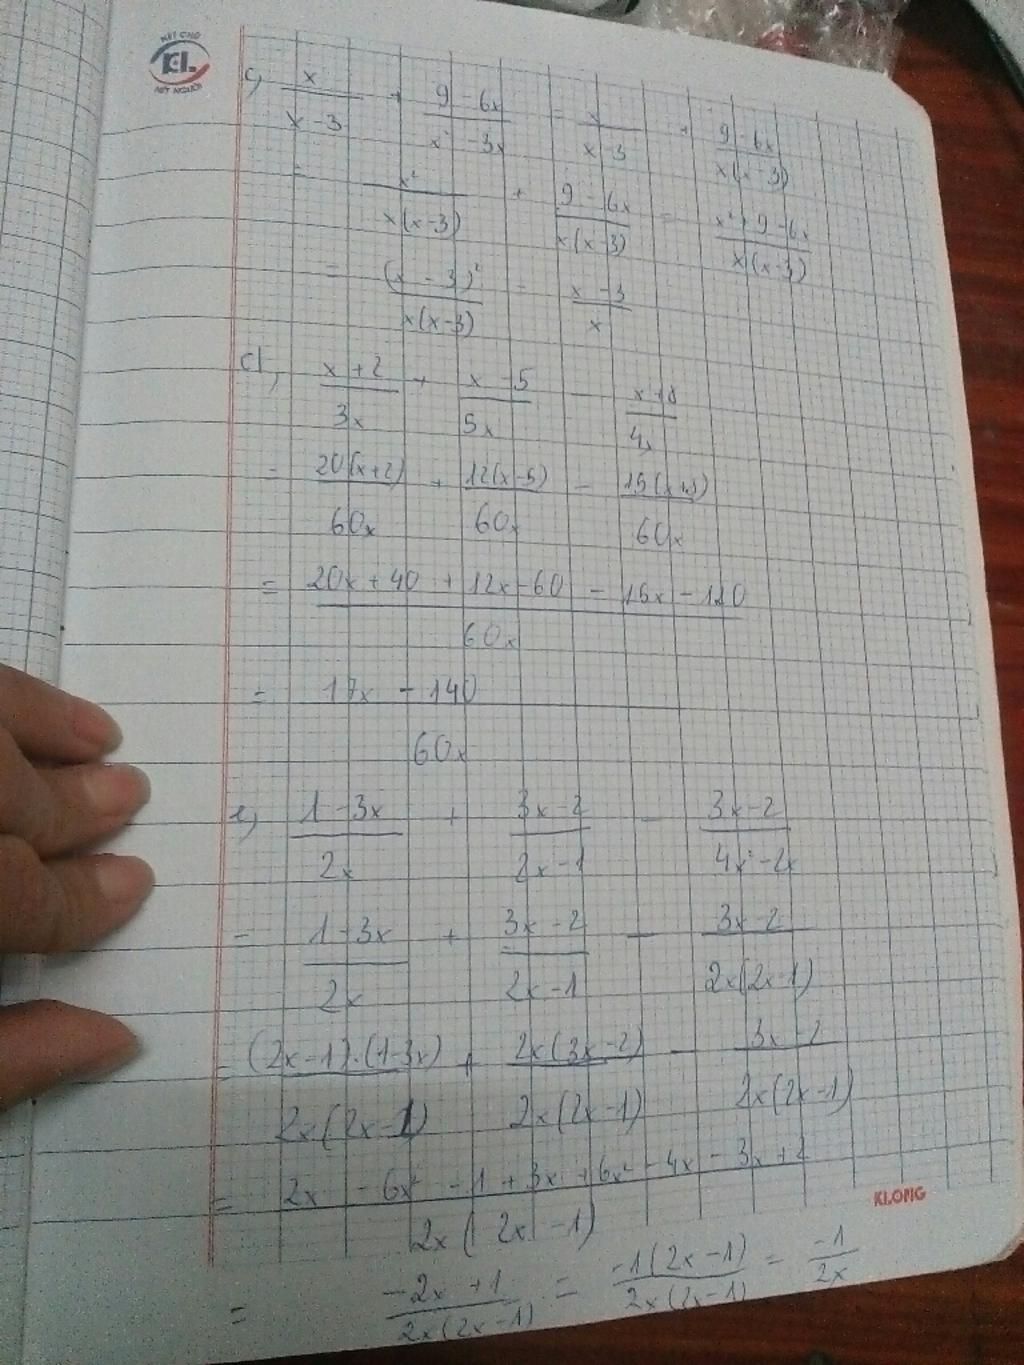 KẾT CHỮ
KL
NÉT NGƯỜI
c, x/(x-3) + (9-6x)/(x²-3x) = x/(x-3) + (9-6x)/(x(x-3))
= x²/(x(x-3)) + (9-6x)/(x(x-3)) = (x²+9-6x)/(x(x-3))
= (x-3)²/(x(x-3)) = (x-3)/x
d, (x+2)/3x + (x-5)/5x - (x+8)/4x
= 20(x+2)/60x + 12(x-5)/60x - 15(x+8)/60x
= (20x+40+12x-60-15x-120)/60x
= (17x-140)/60x
e, (1-3x)/2x + (3x-2)/(2x-1) - (3x-2)/(4x²-2x)
= (1-3x)/2x + (3x-2)/(2x-1) - (3x-2)/(2x(2x-1))
= (2x-1).(1-3x)/(2x(2x-1)) + 2x(3x-2)/(2x(2x-1)) - (3x-2)/(2x(2x-1))
= (2x-6x²-1+3x+6x²-4x-3x+2)/(2x(2x-1))
KLONG
= (-2x+1)/(2x(2x-1)) = -1(2x-1)/(2x(2x-1)) = -1/2x